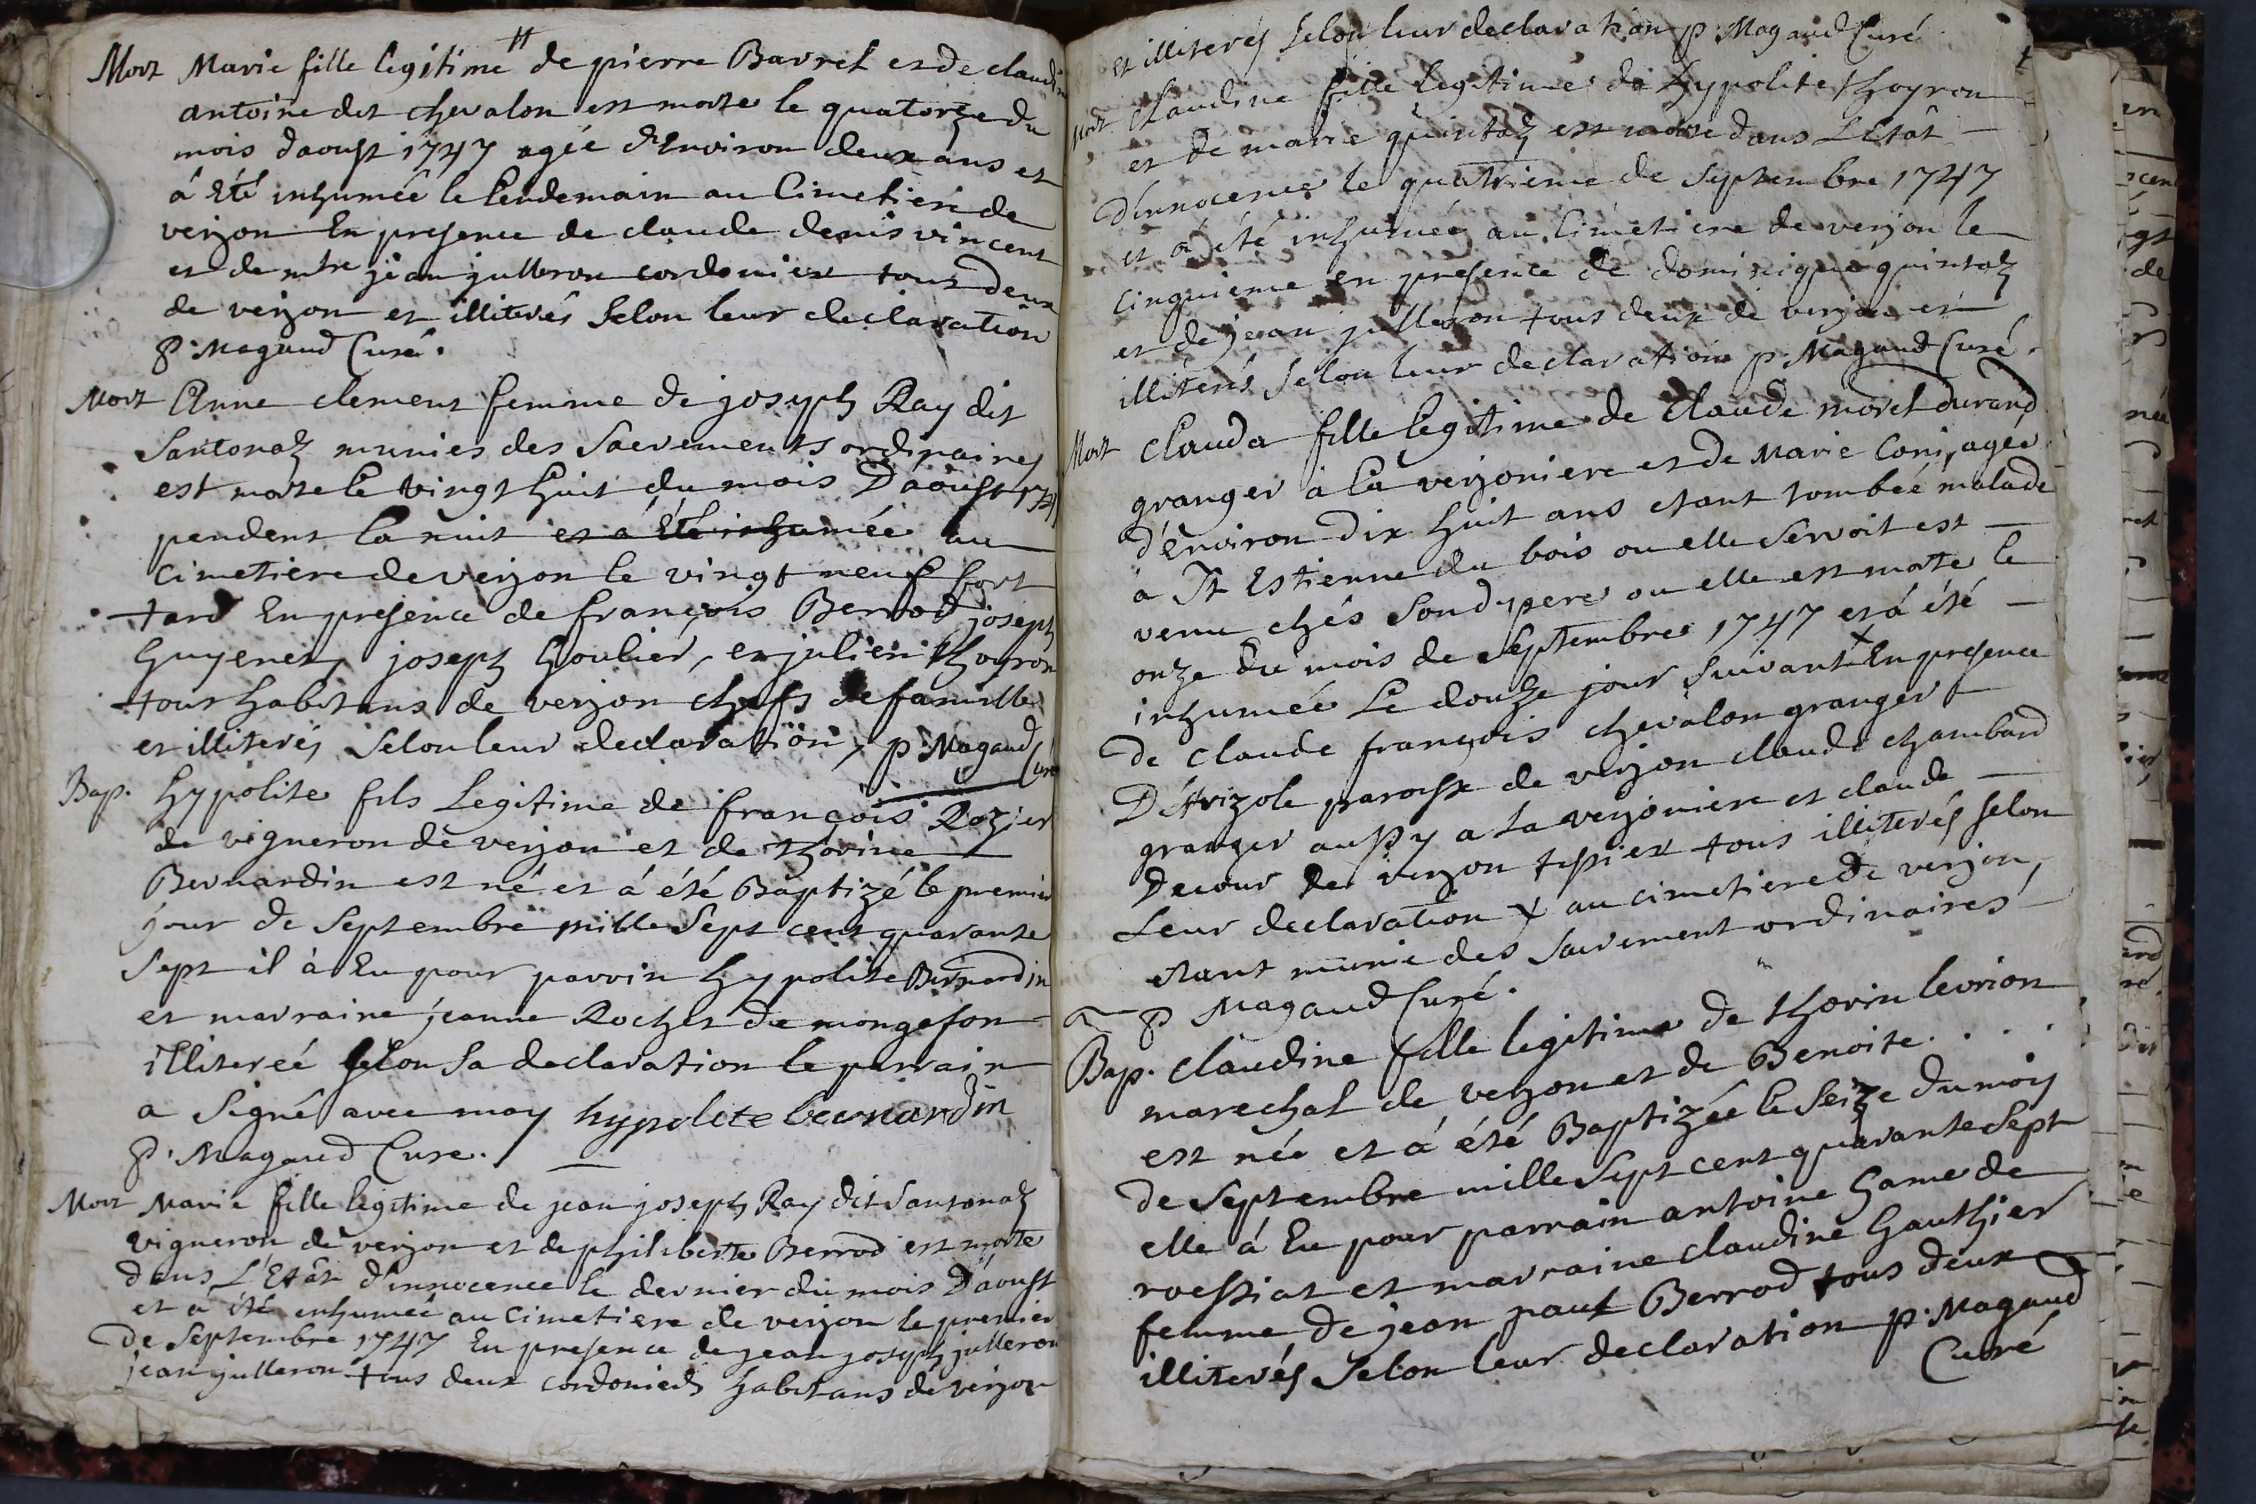 Mort Marie fille legitime de pierre Bavret et de claudine
antoine dit chevalon est morte le quatorze du
mois daoust 1747 agée d'Environ deux ans et
á Eté inhumée le lendemain au Cimetiere de
verjon En presence de claude denis vincent
et de mtre jean julleron cordonier tous deux
de verjon et illiterés Selon leur declaration
p. Magaud Curé.
Mort Anne clement femme de joseph Ray dit
Santonaz munies des Sacrements ordinaires
est morte le vingt huit du mois D'aoust 1747
pendent la nuit et a Eté inhumée au
Cimetiere de verjon le vingt neuf fort
tard En presence de françois Berrod joseph
Guyenet, joseph Goubier, et julien thoyron
tous habitans de verjon chefs de famille
et illiterés Selon leur declaration, p Magaud Curé
Bap. hypolite fils Legitime de françois Rozier
de vigneron de verjon et de thorine
Bernardin est né et á été Baptizé le premier
jour de Septembre mille Sept cent quarante
Sept il à Eu pour parrin hypolite Bernardin
et marraine jeanne Rochet de mongefon
illitereé Selon Sa declaration le parrain
a Signé avec moy hypolite bernardin
p. Magaud Cure.
Mort Marie fille legitime de jean joseph Ray dit Santonaz
vigneron de verjon et de philiberte Berrod est morte
dans L'Etât d'innocence le dernier du mois D'áoust
et a été inhumeé au Cimetiere de verjon le premier
de Septembre 1747 En presence de jean joseph julleron
jean julleron tous deux cordoniers habitans de verjon
et illiterés Selon leur declaration p. Magaud Curé
Mort Claudine fille legitime de hypolite thoyron
et de marie quintaz est morte dans L'Etât
d'innocence le quatrieme de Septembre 1747
et á été inhumée au Cimetiere de verjon le
Cinquieme en presence de dominique quintaz
et de jean julleron tous deux de verjon et
illiterés Selon leur declaration p. Magaud Curé.
Mort Clauda fille legitime de claude morel durand
granger á la verjoniere et de Marie Coni, ageé
d'énviron dix huit ans etant tombeé malade
à St Estienne du bois ou elle Servoit est
venu chés Son d. pere ou elle est morte le
onze du mois de Septembre 1747 et á été
inhumée Le douze jour Suivant x En presence
de Claude françois chevalon granger
D'Avizole paroisse de verjon claude chambard
granger aussy a La verjoniere et claude
Decour de verjon tissier tous illiterés Selon
Leur declaration x au cimetiere de verjon,
etant munie des Sacrement ordinaires
p Magaud Curé.
Bap. Claudine fille legitime de thorin levrion
marechal de verjon et de Benoite . . . .
est née et á été Baptizée le Seize du moiy
de Septembre mille Sept cent quarante Sept
elle á Eu pour parrain antoine Game de
roessiat et marraine claudine Gauthier
femme de jean paul Berrod tous deux
illiterés Selon leur declaration p. Magaud
Curé